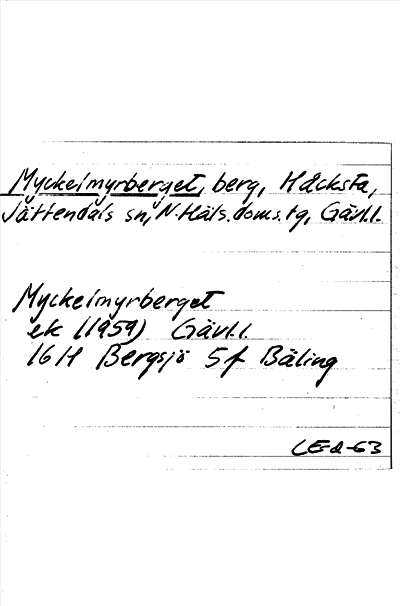 Myckelmyrberget, berg, Håcksta,
Jättendals sn, N. Häls. doms. tg, Gävl.l.
Myckelmyrberget
ek (1959) Gävl.l.
16 H Bergsjö 5f Bäling